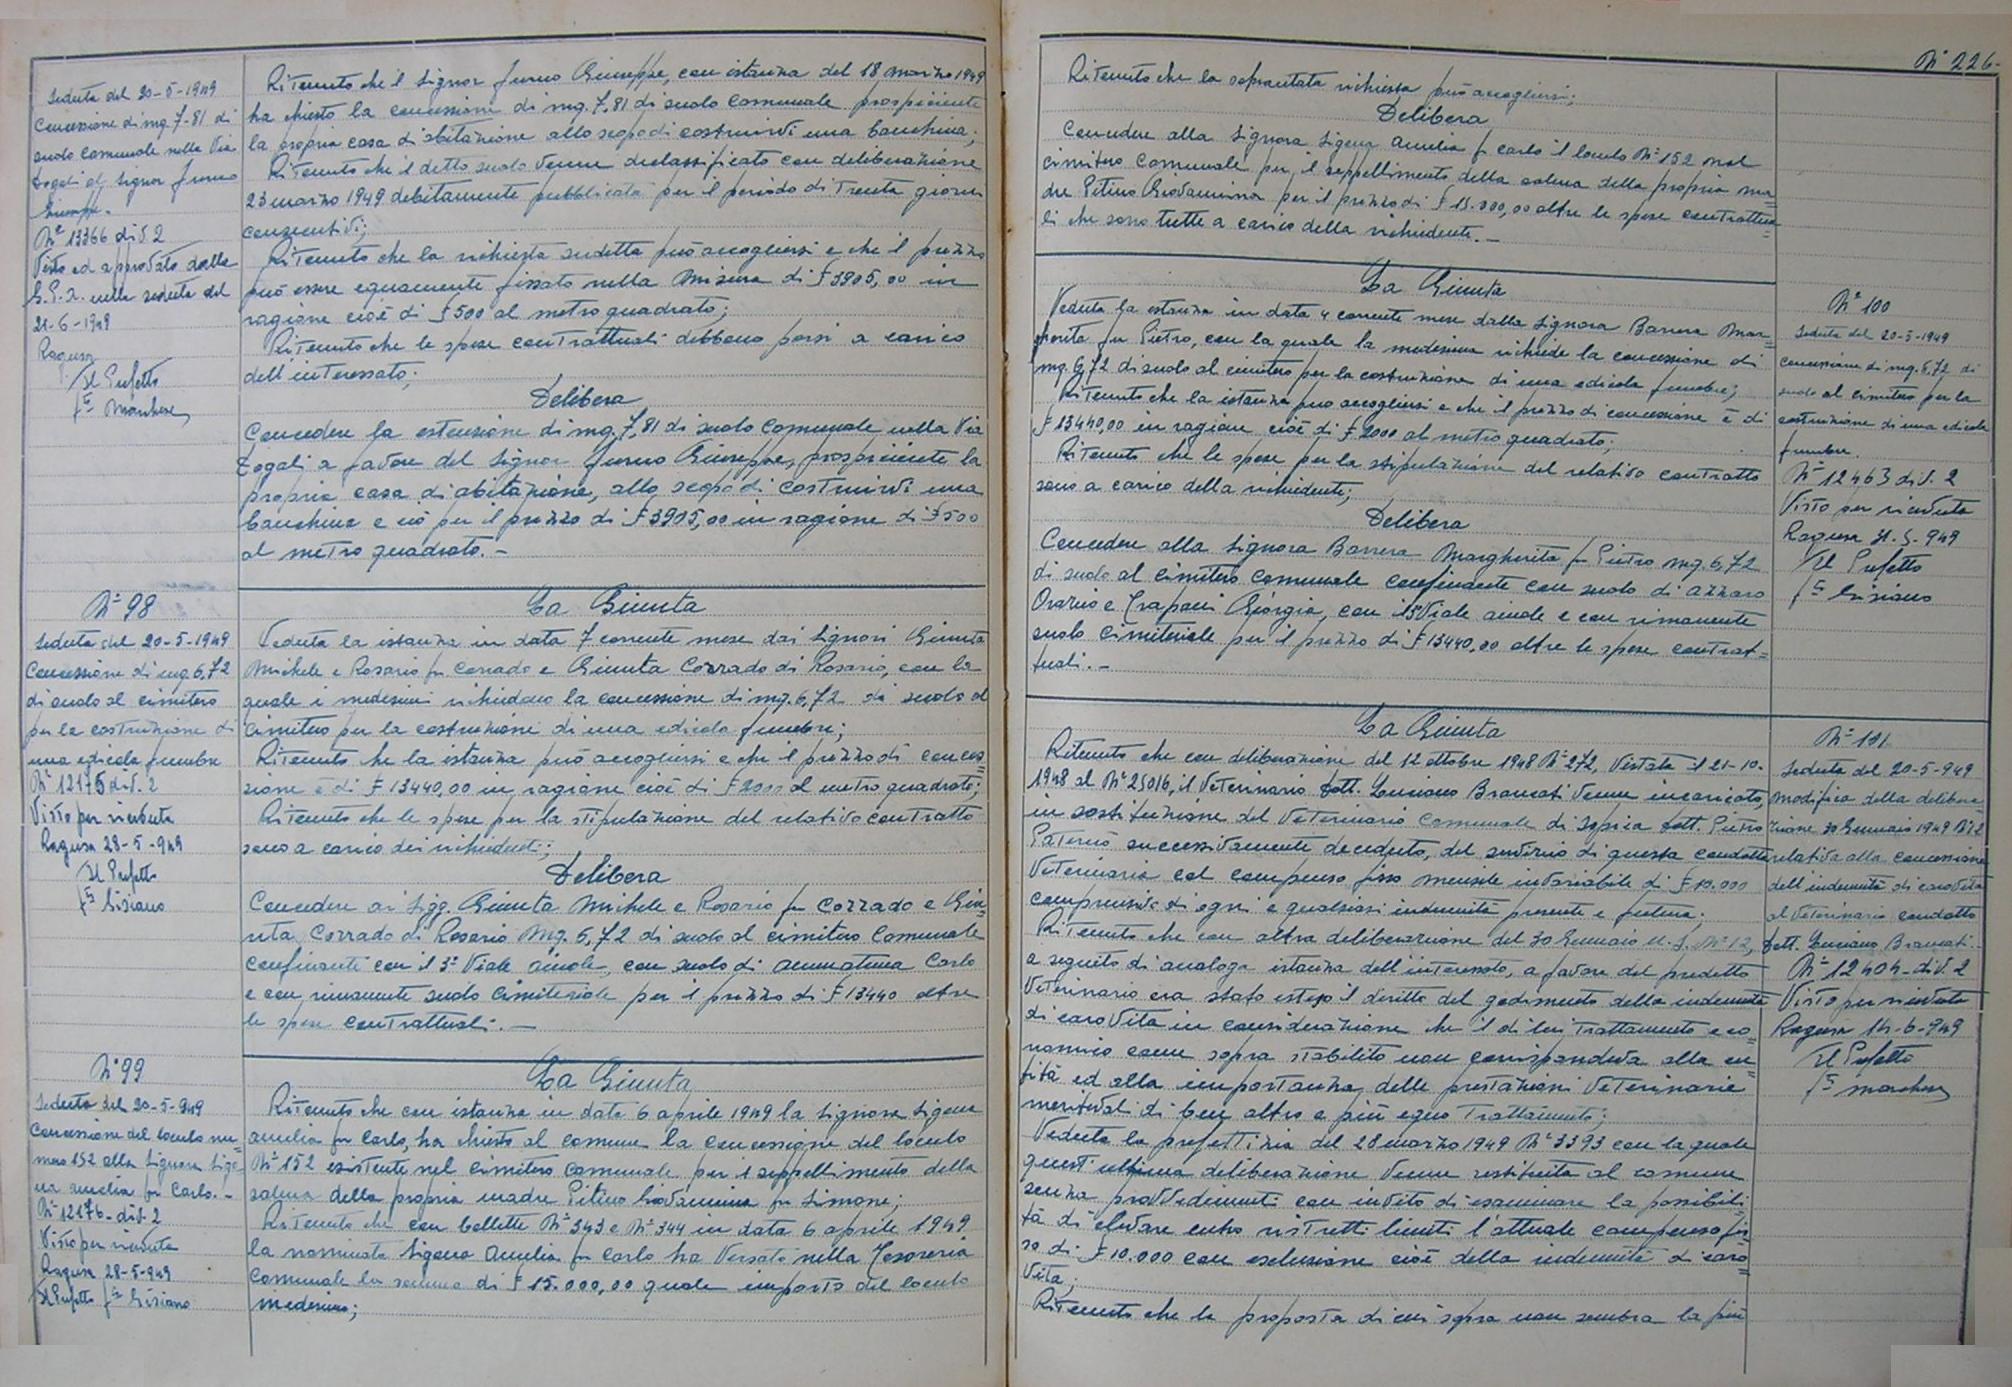 Seduta del 20-5-1949
Concessione di mq. 7,81 di
suolo comunale nella Via
Dogali al Signor Iurno
Giuseppe.
N° 13366 div. 2
Visto ed approvato dalla
G.P.A. nella seduta del
21-6-1949
Ragusa
Il Prefetto
f.to Marchese
Ritenuto che il Signor Iurno Giuseppe, con istanza del 18 marzo 1949
ha chiesto la concessione di mq. 7,81 di suolo comunale prospiciente
la propria casa d'abitazione allo scopo di costruirvi una banchina;
Ritenuto che il detto suolo venne declassificato con deliberazione
23 marzo 1949 debitamente pubblicata per il periodo di trenta giorni
consecutivi;
Ritenuto che la richiesta sudetta può accogliersi e che il prezzo
può essere equamente fissato nella misura di £ 3905,00 in
ragione cioè di £ 500 al metro quadrato;
Ritenuto che le spese contrattuali debbono porsi a carico
dell'interessato;
Delibera
Concedere la estensione di mq. 7,81 di suolo comunale nella Via
Dogali a favore del Signor Iurno Giuseppe, prospiciente la
propria casa d'abitazione, allo scopo di costruirvi una
banchina e ciò per il prezzo di £ 3905,00 in ragione di £ 500
al metro quadrato. -
N° 98
Seduta del 20-5-1949
Concessione di mq. 6,72
di suolo al cimitero
per la costruzione di
una edicola funebre
N° 12175 div. 2
Visto per ricevuta
Ragusa 28-5-949
Il Prefetto
f.to Gisiano
La Giunta
Veduta la istanza in data 7 corrente mese dai Signori Giunta
Michele e Rosario fu Corrado e Giunta Corrado di Rosario, con la
quale i medesimi richiedono la concessione di mq. 6,72 di suolo al
cimitero per la costruzione di una edicola funebre;
Ritenuto che la istanza può accogliersi e che il prezzo di conces=
sione è di £ 13440,00 in ragione cioè di £ 2000 al metro quadrato;
Ritenuto che le spese per la stipulazione del relativo contratto
sono a carico dei richiedenti;
Delibera
Concedere ai Sigg. Giunta Michele e Rosario fu Corrado e Giu=
nta Corrado di Rosario mq. 6,72 di suolo al cimitero comunale
confinante con il 3° Viale aiuole, con suolo di Ammatuna Carlo
e con rimanente suolo cimiteriale per il prezzo di £ 13440 oltre
le spese contrattuali. -
N° 99
Seduta del 20-5-949
Concessione del loculo nu=
mero 152 alla Signora Lige=
na Amelia fu Carlo. -
N° 12176 - div. 2
Visto per ricevuta
Ragusa 28-5-949
Il Prefetto f.to Gisiano
La Giunta
Ritenuto che con istanza in data 6 aprile 1949 la Signora Ligena
Amelia fu Carlo, ha chiesto al comune la concessione del loculo
N° 152 esistente nel cimitero comunale per il seppellimento della
salma della propria madre Pitino Giovannina fu Simone;
Ritenuto che con bollette N° 343 e N° 344 in data 6 aprile 1949
la nominata Ligena Amelia fu Carlo ha versato nella Tesoreria
Comunale la somma di £ 15.000,00 quale importo del loculo
medesimo;
N° 226-
Ritenuto che la sopracitata richiesta può accogliersi;
Delibera
Concedere alla Signora Ligena Amelia fu Carlo il loculo N° 152 nel
cimitero comunale per il seppellimento della salma della propria ma=
dre Pitino Giovannina per il prezzo di £ 15.000,00 oltre le spese contrattua=
li che sono tutte a carico della richiedente. -
La Giunta
Veduta la istanza in data 4 corrente mese dalla Signora Barrera Mar=
gherita fu Pietro, con la quale la medesima richiede la concessione di
mq. 6,72 di suolo al cimitero per la costruzione di una edicola funebre;
Ritenuto che la istanza può accogliersi e che il prezzo di concessione è di
£ 13440,00 in ragione cioè di £ 2000 al metro quadrato;
Ritenuto che le spese per la stipulazione del relativo contratto
sono a carico della richiedente;
Delibera
Concedere alla Signora Barrera Margherita fu Pietro mq. 6,72
di suolo al cimitero comunale confinante con suolo di Azzaro
Orazio e Trapani Giorgia, con 15° Viale aiuole e con rimanente
suolo cimiteriale per il prezzo di £ 13440,00 oltre le spese contrat=
tuali. -
N° 100
Seduta del 20-5-949
Concessione di mq. 6,72 di
suolo al cimitero per la
costruzione di una edicola
funebre.
N° 12463 div. 2
Visto per ricevuta
Ragusa 31-5-949
Il Prefetto
f.to Gisiano
La Giunta
Ritenuto che con deliberazione del 12 ottobre 1948 N° 272, vistata il 21-10-
1948 al N° 25016, il Veterinario Dott. Luciano Brancati venne incaricato,
in sostituzione del Veterinario comunale di sopra Dott. Pietro
Paternò successivamente deceduto, del servizio di questa condotta
Veterinaria col compenso fisso mensile invariabile di £ 10.000
comprensivo di ogni e qualsiasi indennità presente e futura;
Ritenuto che con altra deliberazione del 30 Gennaio u.s. N° 12,
a seguito di analoga istanza dell'interessato, a favore del predetto
Veterinario era stato esteso il diritto del godimento della indennità
di caro vita in considerazione che il di lui trattamento eco=
nomico come sopra stabilito non corrispondeva alla en=
tità ed alla importanza delle prestazioni Veterinarie
meritevoli di ben altro e più equo trattamento;
Veduta la prefettizia del 28 marzo 1949 N° 3393 con la quale
quest'ultima deliberazione venne restituita al comune
senza provvedimenti con invito di esaminare la possibili=
tà di elevare entro ristretti limiti l'attuale compenso fis=
so di £ 10.000 con esclusione cioè della indennità di caro
Vita;
Ritenuto che la proposta di cui sopra non sembra la più
N° 101
Seduta del 20-5-949
Modifica della delibera=
zione 30 Gennaio 1949 N° 12
relativa alla concessione
dell'indennità di caro vita
al Veterinario condotto
Dott. Luciano Brancati.
N° 12404 - div. 2
Visto per ricevuta
Ragusa 14-6-949
Il Prefetto
f.to Marchese